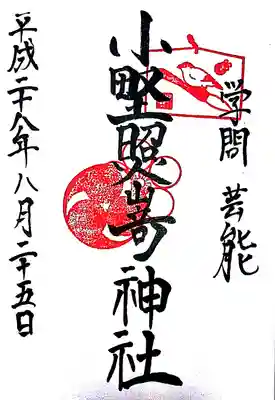 学問 芸能
小野照崎神社
平成二十八年八月二十五日